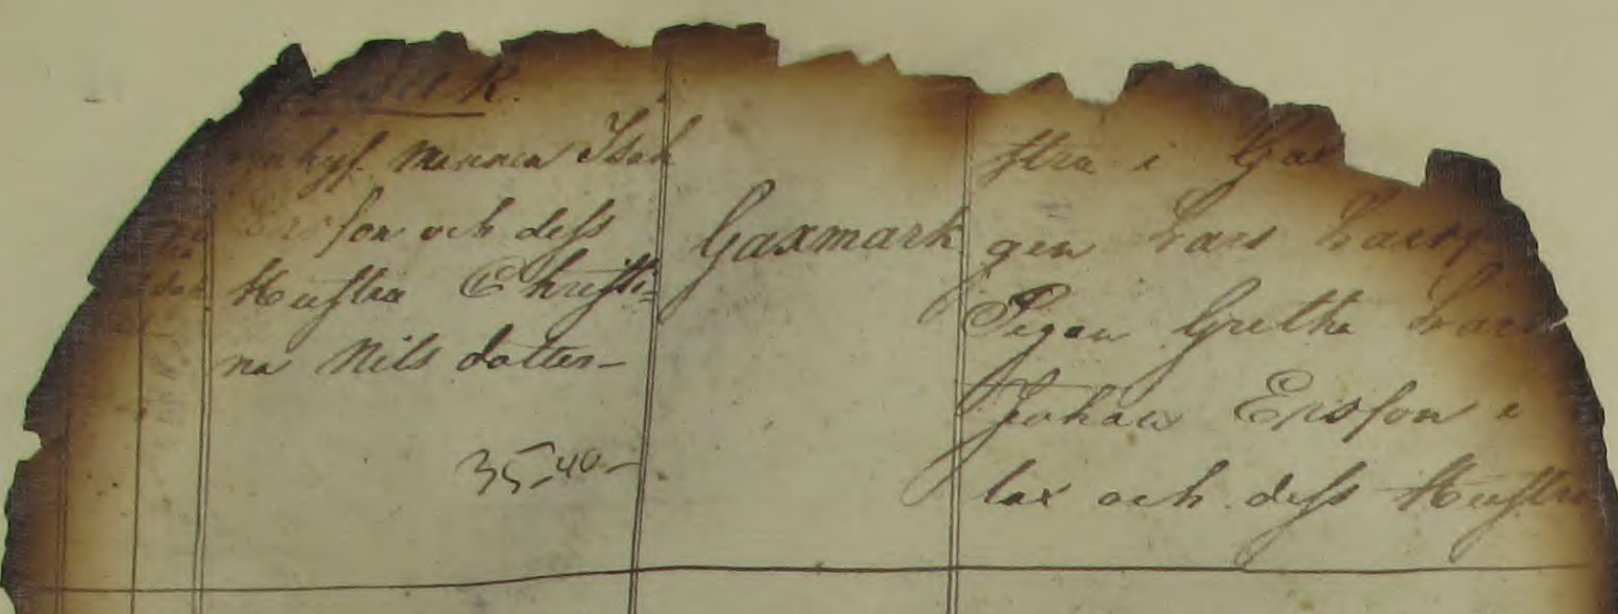 mannen Isak
Ersson och dess
Hustru Christi=
na Nils dotter–
35–40–
Gaxmark
stru i Gax
gen Lars Lars
Pigan Gretha Lars
Johan Ersson i
lax och dess Hustru